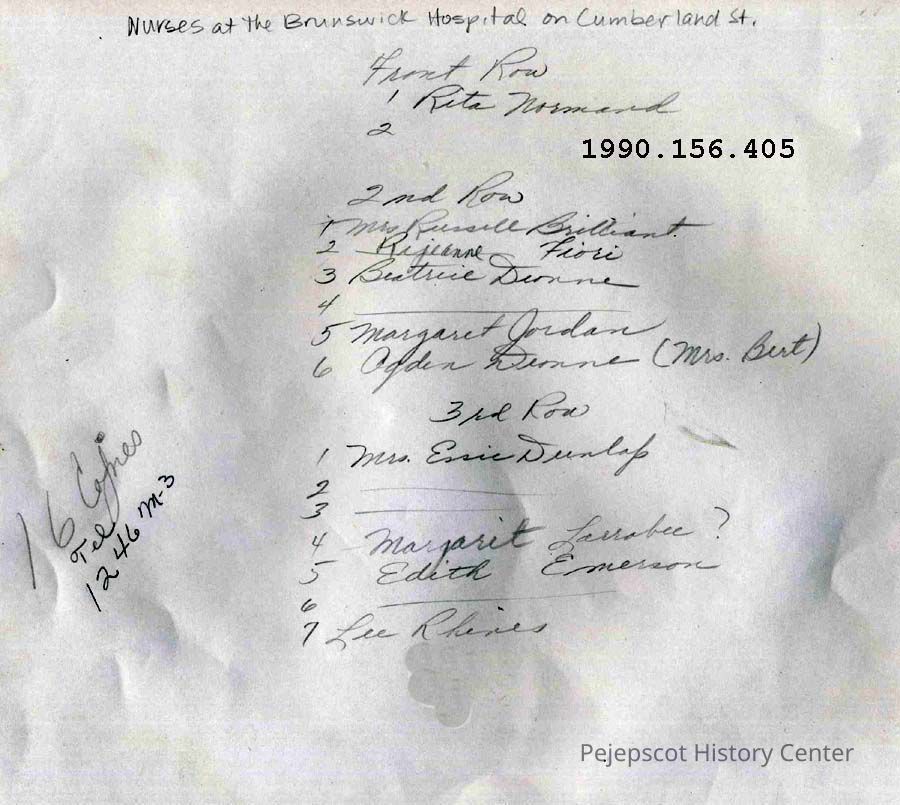 Nurses at the Brunswick Hospital on Cumberland St.
Front Row
1 Rita Normand
2
1990.156.405
2nd Row
1 Mrs Russell Brilliant
2 Rijeanne Fiori
3 Beatrice Dionne
4
5 Margaret Jordan
6 Ogden Dionne (Mrs. Bert)
3rd Row
1 Mrs. Essie Dunlap
2
3
4 Margarit Larrabee ?
5 Edith Emerson
6
7 Lee Rhines
16 Copies
Tel
1246 M-3
Pejepscot History Center